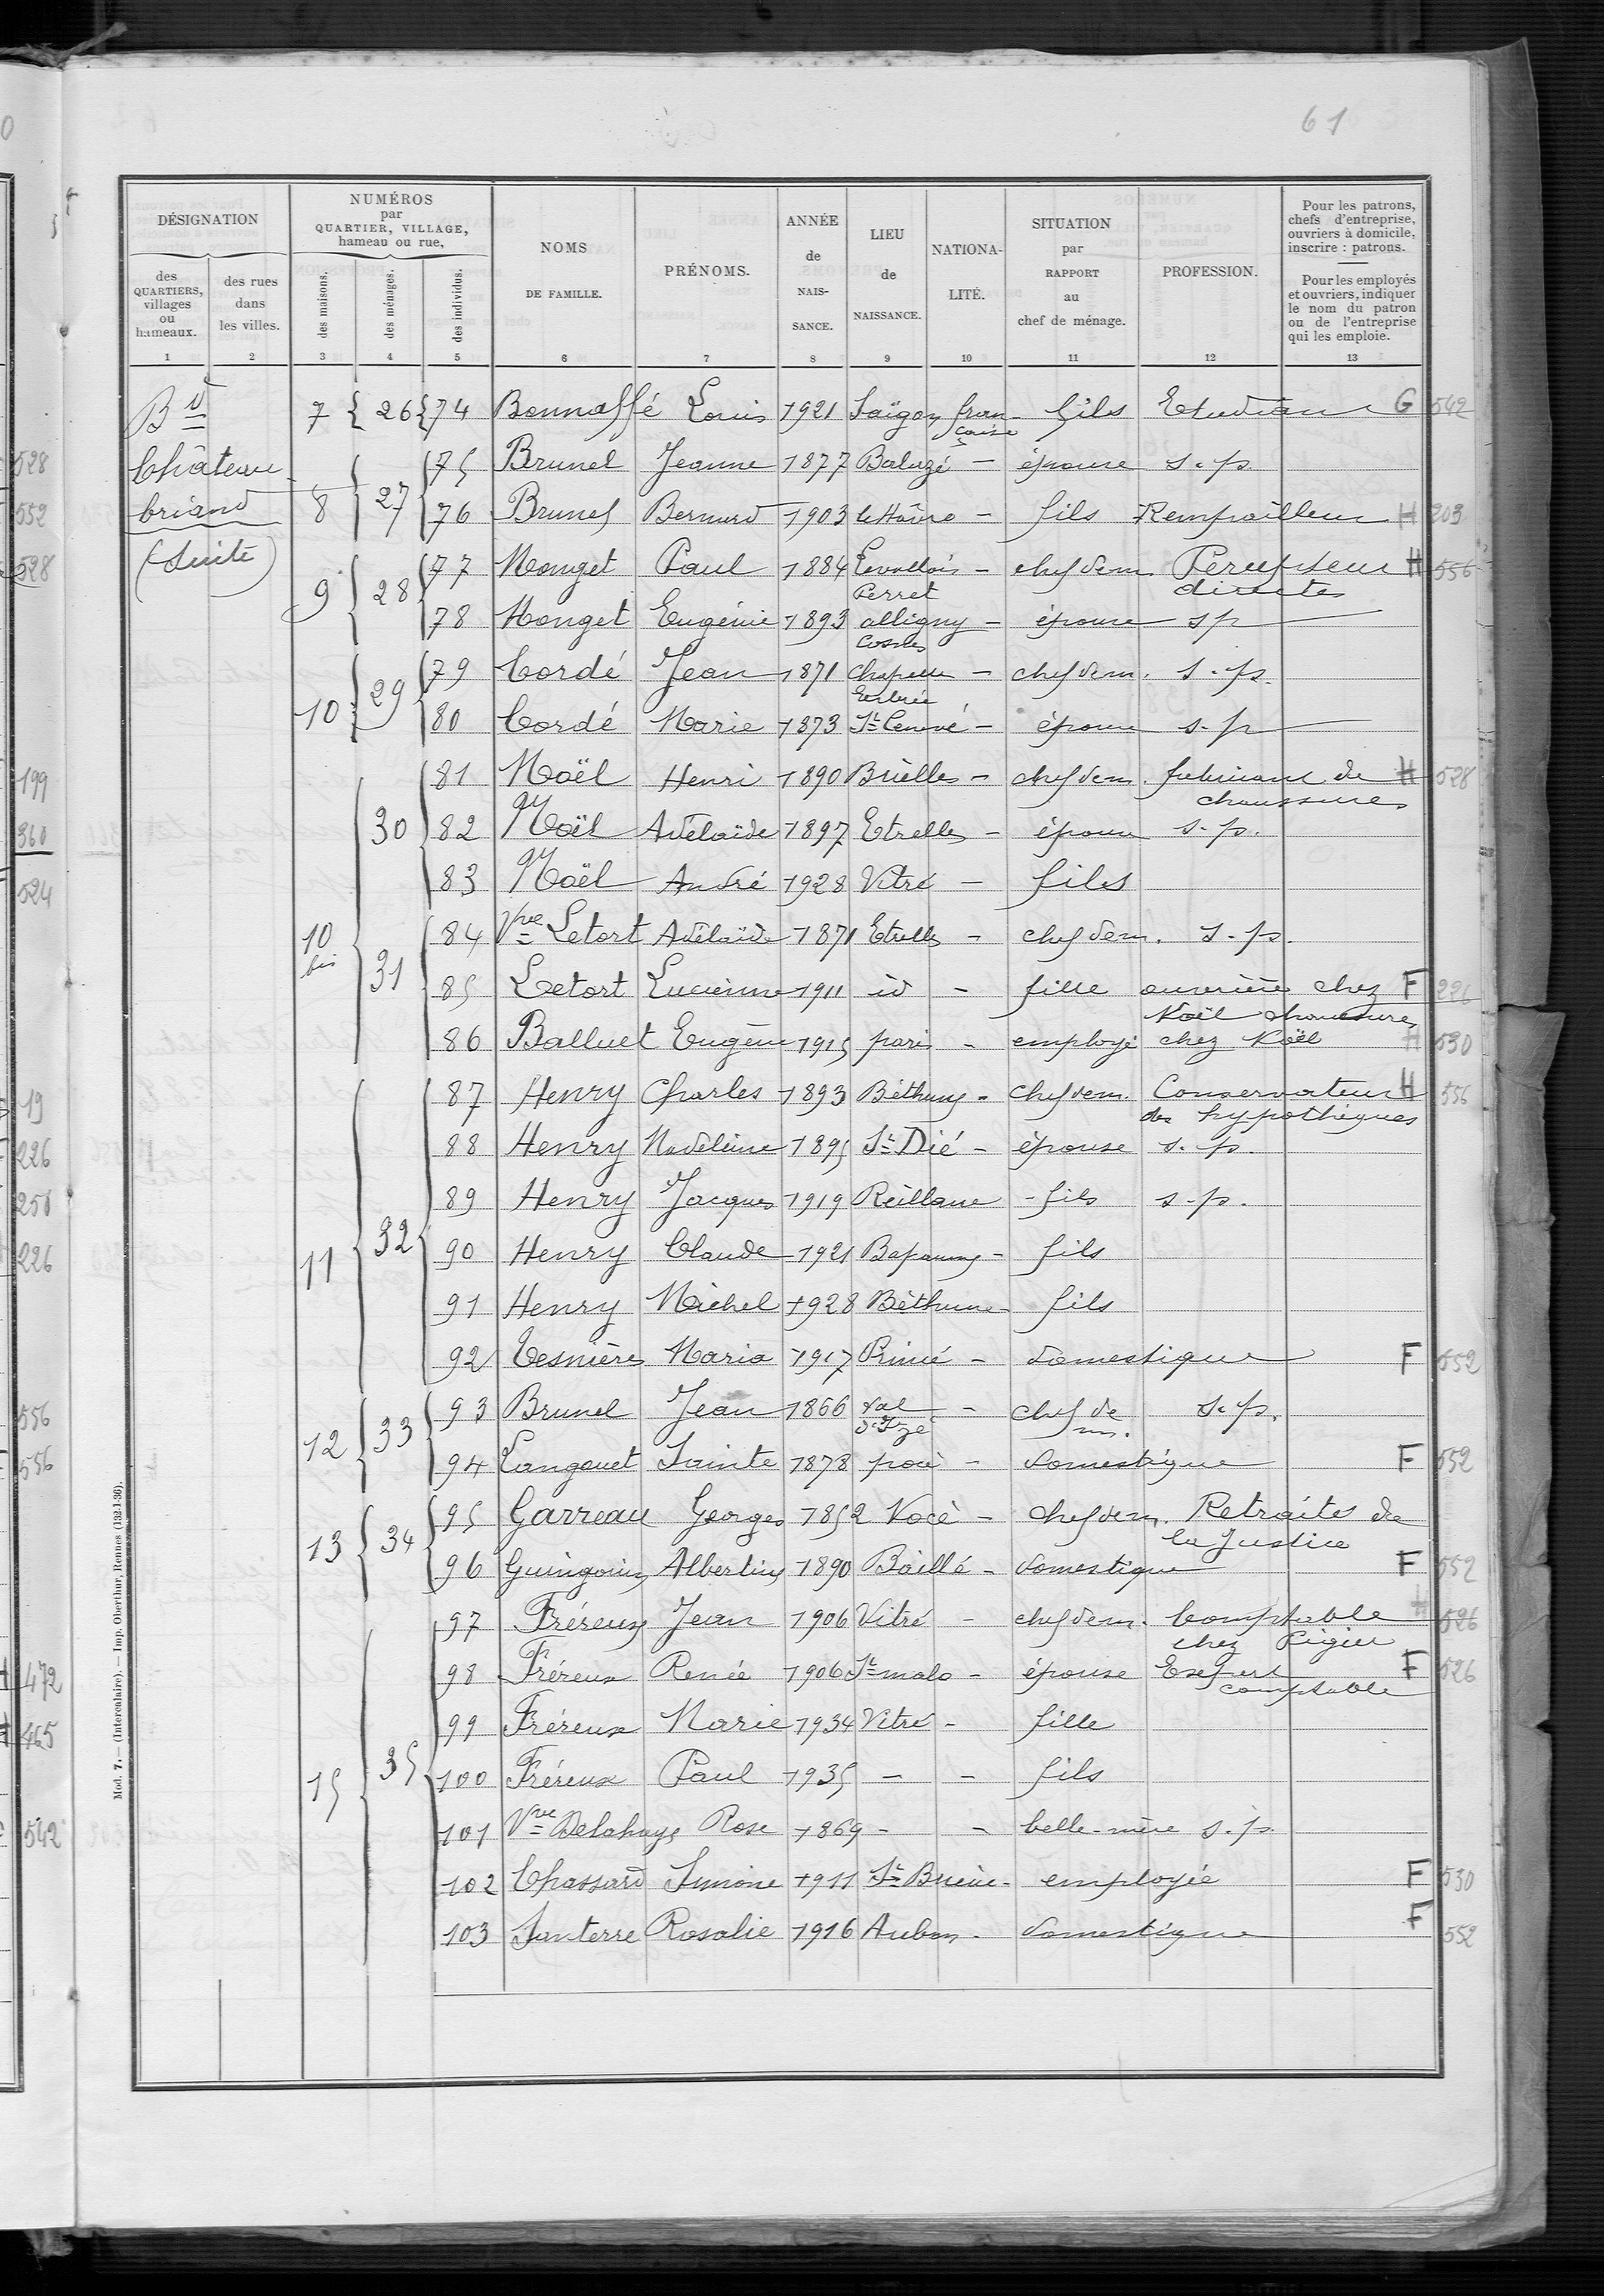 61
DÉSIGNATION
des QUARTIERS, villages ou hameaux.
des rues dans les villes.
NUMÉROS par QUARTIER, VILLAGE, hameau ou rue,
des maisons.
des ménages.
des individus.
NOMS DE FAMILLE.
PRÉNOMS.
ANNÉE de NAISSANCE.
LIEU de NAISSANCE.
NATIONALITÉ.
SITUATION par RAPPORT au chef de ménage.
PROFESSION.
Pour les patrons, chefs d'entreprise, ouvriers à domicile, inscrire : patrons.
Pour les employés et ouvriers, indiquer le nom du patron ou de l'entreprise qui les emploie.
1 2 3 4 5 6 7 8 9 10 11 12 13
Bd Château-briand (Suite)
7 26 74 Bonnaffé Louis 1921 Saïgon française fils Etudiant G 542
75 Brunel Jeanne 1877 Balazé - épouse s.p.
8 27 76 Brunel Bernard 1903 le Hâvre - fils Rempailleur H 203
9 28 77 Monget Paul 1884 Levallois Perret - chef dem. Percepteur directes H 556
78 Monget Eugénie 1893 alligny Cosnes - épouse sp
10 29 79 Cordé Jean 1871 Chapelle Erbrée - chef dem. s.p.
80 Cordé Marie 1873 - épouse s.p
30 81 Noël Henri 1890 Brielles - chef dem. fabricant de chaussures H 528
82 Noël Adélaïde 1897 Etrelles - épouse s.p.
83 Noël André 1928 Vitré - fils
10 bis 31 84 Vve Letort Adélaïde 1871 Etrelles - chef dem. s.p.
85 Letort Lucienne 1911 id - fille ouvrière chez Noël chaussures F 226
86 Balluet Eugène 1915 paris - employé chez Noël H 530
11 32 87 Henry Charles 1893 Bétheny - chef dem. Conservateur des hypothèques H 556
88 Henry Madeleine 1895 St Dié - épouse s.p.
89 Henry Jacques 1919 Reillane - fils s.p.
90 Henry Claude 1921 Bapaume - fils
91 Henry Michel 1928 Béthune - fils
92 Tesnières Maria 1917 Princé - domestique F 552
12 33 93 Brunel Jean 1866 Val d'Izé - chef de m. s.p.
94 Langouet Sainte 1878 pocé - domestique F 552
13 34 95 Garreau Georges 1852 Vocé - chef dem. Retraités de la Justice
96 Guingouin Albertine 1890 Baillé - domestique F 552
15 35 97 Fréreux Jean 1906 Vitré - chef dem. Comptable chez Pigier H 526
98 Fréreux Renée 1906 St malo - épouse Expert comptable F 526
99 Fréreux Marie 1934 Vitré - fille
100 Fréreux Paul 1935 - - fils
101 Vve Delahaye Rose 1869 - - belle-mère s.p.
102 Chassard Simone 1911 St Brieuc - employée F 530
103 Santerre Rosalie 1916 - domestique F 552
Mod. 7. — (Intercalaire). — Imp. Oberthur, Rennes (132-1-36).
528
552
528
199
360
524
19
226
250
226
556
556
472
465
542